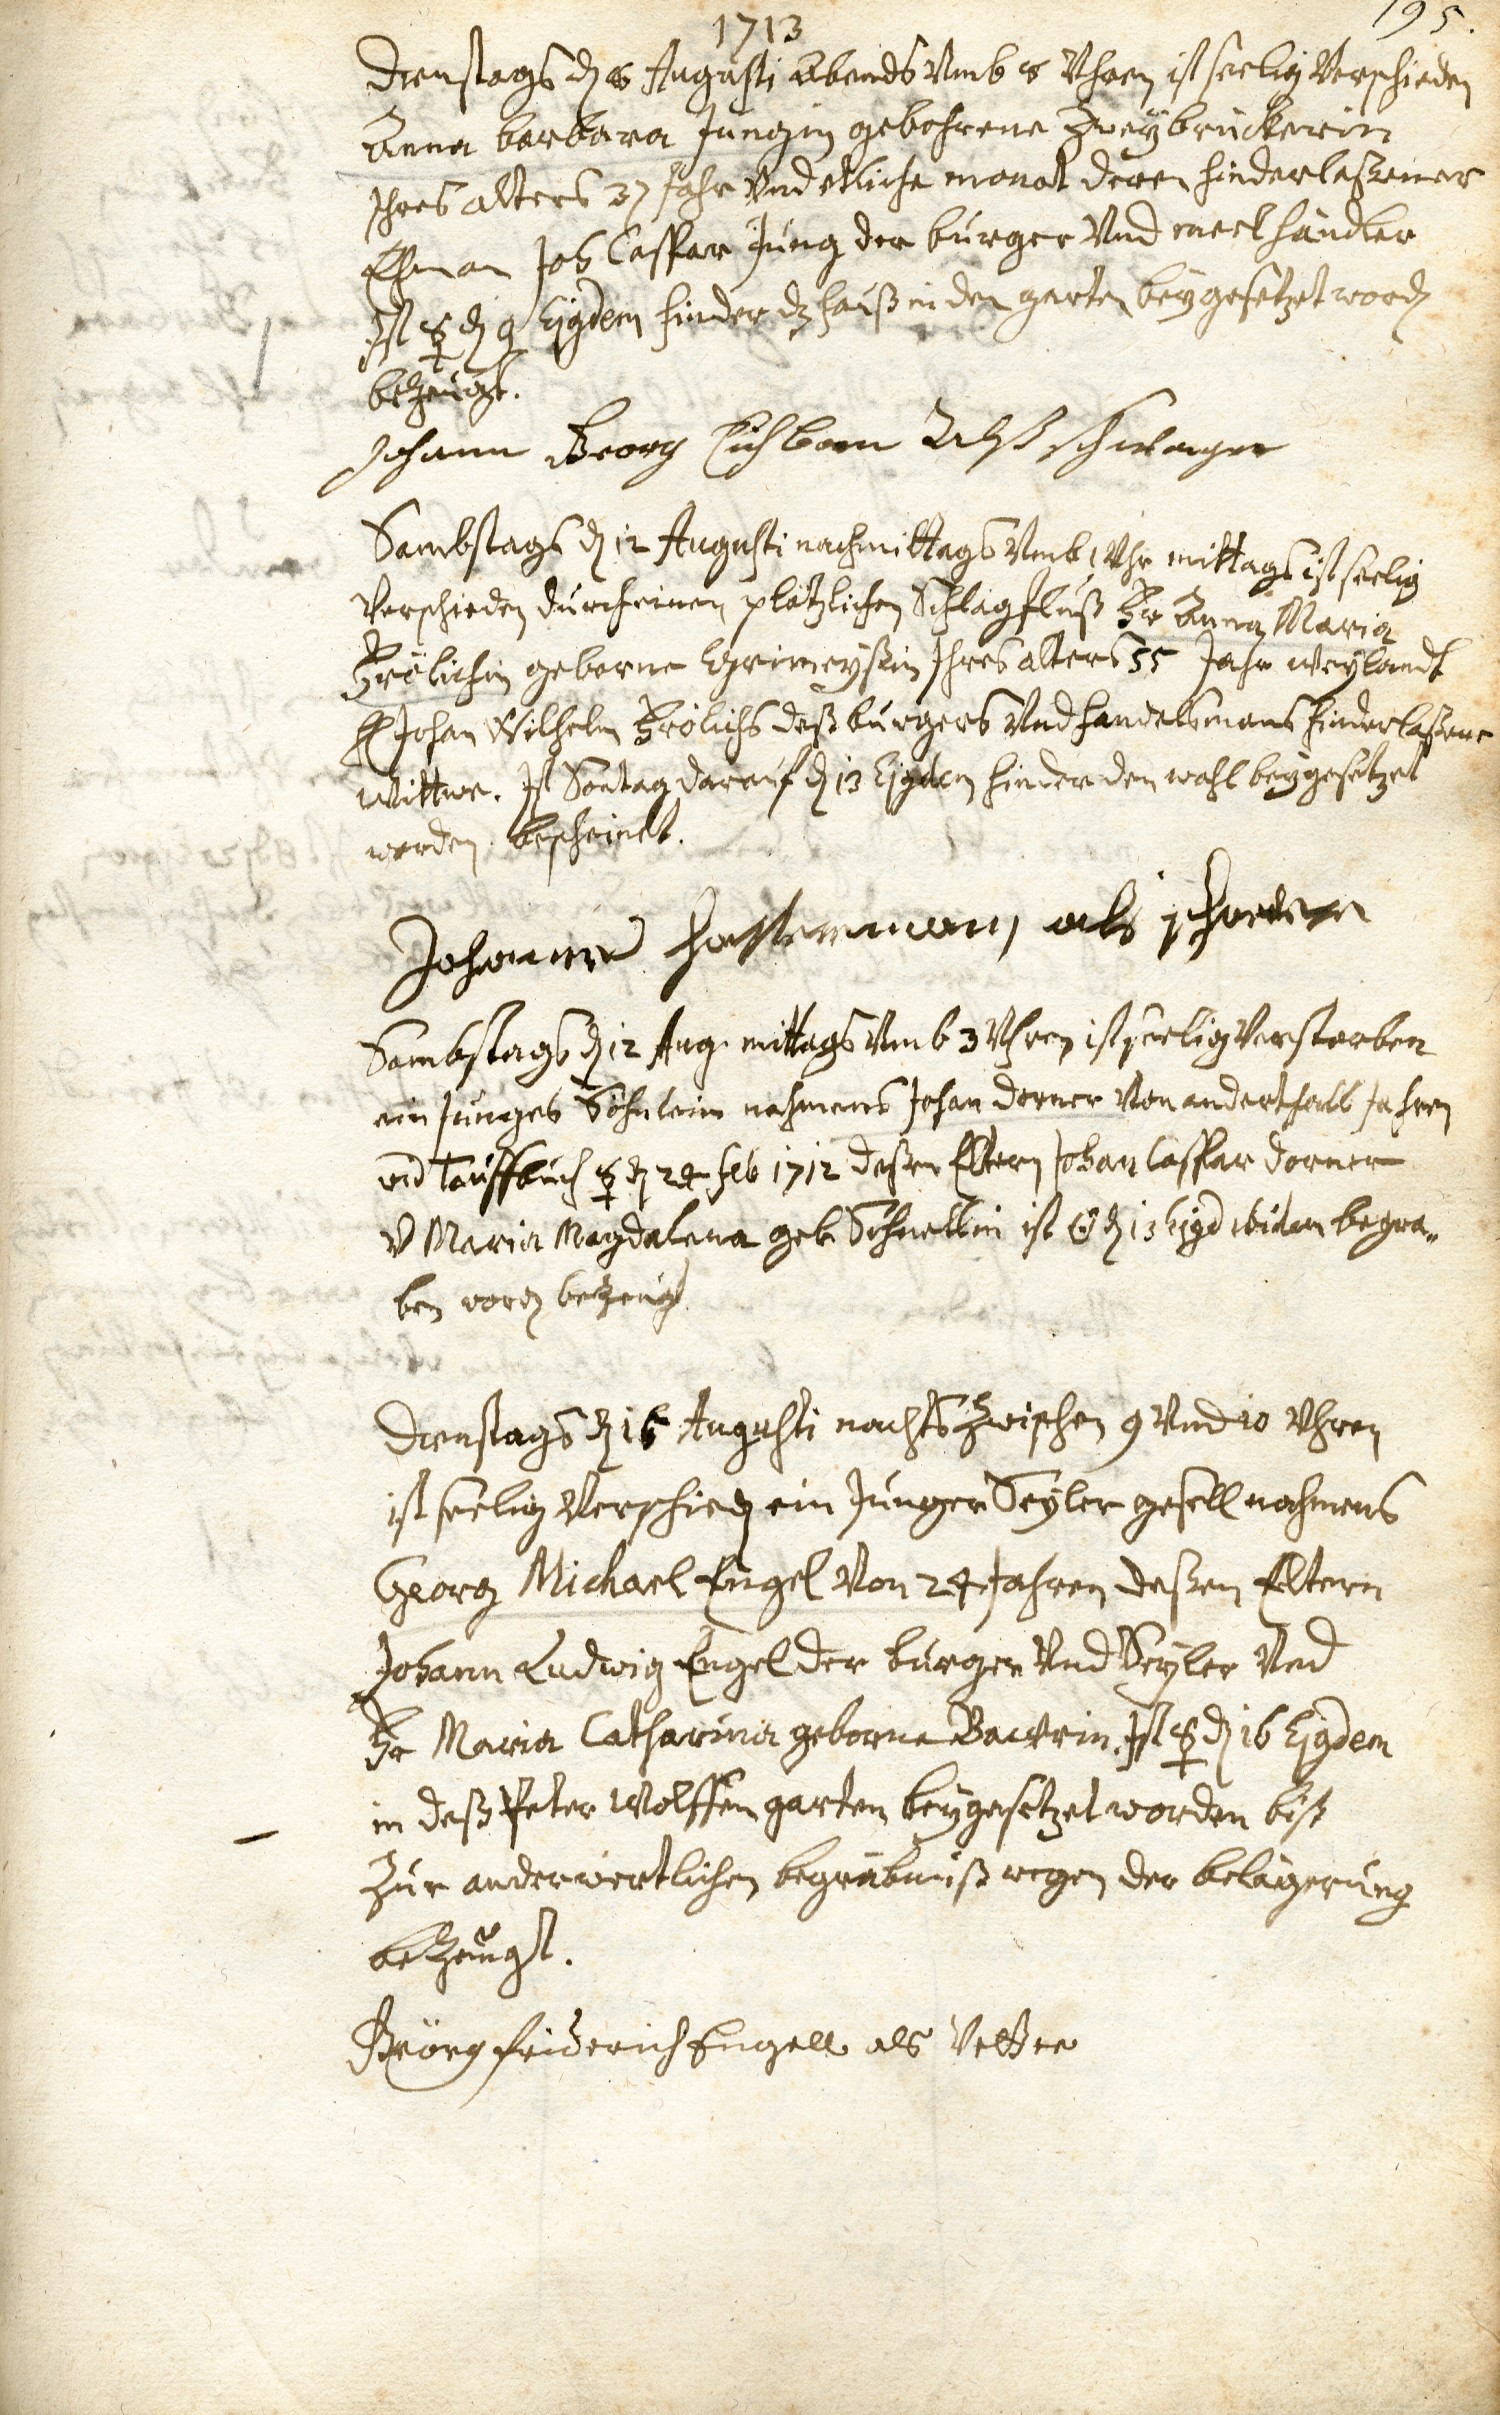 1713
195.
Dienstags d 8 Augusti Abends Vmb 8 Uhren ist seelig Verschieden
Anna barbara Jungin gebohrene Zweybrückerin
Ihres alters 37 Jahr Vnd etliche monat deren hinderlaßener
Ehman Joh Caspar Jung der burger Vnd meelhändler
Ist ☿ d 9 Ejgdem hinder dz hauß in den garten beygesetzet word
bezeugt.
Johann Georg Eichborn Alß schwager
Sambstags d 12 Augusti nachmittags Vmb 1 Vhr mittags ist seelig
Verschieden durch einen plötzlichen Schlagfluß Fr Anna Maria
Frölichin geborne Ihres alters 55 Jahr weylandt
H Johan Wilhelm Frölichs deß burgers Vnd handelsmans hinderlaßene
Wittwe. Ist Sontag darauf d 13 Ejgdem hinder den wahl beygesetzet
worden bescheinet.
Johannes als
Sambstags d 12 Aug. mittags Vmb 3 Vhren ist seelig Verstorben
ein Junges Söhnlein nahmens Johan dorner Von anderthalb Jahren
vid Tauffbuch ☿ d 24 feb 1712 deßen Eltern Johan Caspar dorner
V Maria Magdalena geb. Schnellin ist ☉ d 13 Ejgd begra„
ben word bezeugt
Dienstags d 15 Augusti nachts Zwischen 9 Vnd 10 Vhren
ist seelig Verschied ein Junger Seyler gesell nahmens
Georg Michael Engel Von 24 Jahren deßen Eltern
Johann Ludwig Engel der burger Vnd Seyler Vnd
Fr Maria Catharina geborne Bawrin. Ist ☿ d 16 Ejgdem
in deß Peter Wolffen garten beygesetzet worden biß
Zur anderwertlichen begräbnuß wegen der belagerung
bezeugt.
Geörg friderich Engell als Vetter